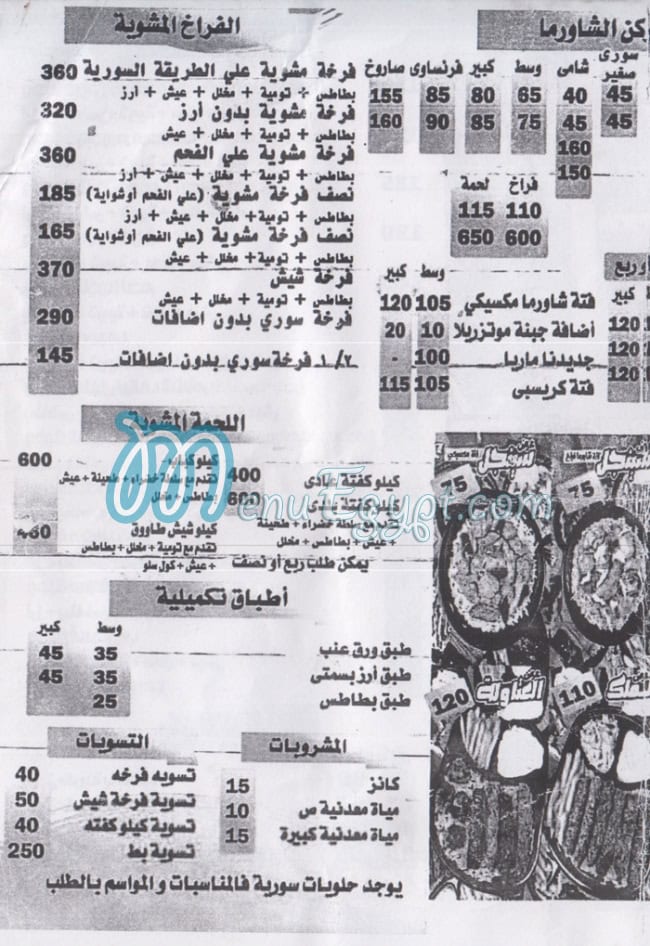 ركن الشاورما
سورى صغير شامى وسط كبير فرنساوى صاروخ
45 40 65 80 85 155
45 45 75 85 90 160
160
150
فراخ لحمة
110 115
600 650
وربع
كبير
120
120
120
وسط كبير
فتة شاورما مكسيكي 105 120
أضافة جبنة موتزريلا 10 20
جديدنا ماريا 100 -
فتة كريسبى 105 115
الفراخ المشوية
فرخة مشوية علي الطريقة السورية 360
بطاطس + تومية + مخلل + عيش + أرز
فرخة مشوية بدون أرز 320
بطاطس + تومية + مخلل + عيش
فرخة مشوية علي الفحم 360
بطاطس + تومية + مخلل + عيش + أرز
نصف فرخة مشوية (علي الفحم أوشواية) 185
بطاطس + تومية + مخلل + عيش + أرز
نصف فرخة مشوية (علي الفحم أوشواية) 165
بطاطس + تومية + مخلل + عيش
فرخة شيش 370
بطاطس + تومية + مخلل + عيش
فرخة سوري بدون اضافات 290
١/٢ فرخة سوري بدون اضافات 145
اللحمة المشوية
كيلو كفتة عادى 400
كيلو كفتة بلدى 600
تقدم مع سلطة خضراء + طحينة
+ عيش + بطاطس + مخلل
يمكن طلب ربع أو نصف
كيلو كباب 600
تقدم مع سلطة خضراء + طحينة + عيش
+ بطاطس + مخلل
كيلو شيش طاووق
تقدم مع تومية + مخلل + بطاطس
+ عيش + كول سلو
MenuEgypt.com
أطباق تكميلية
وسط كبير
طبق ورق عنب 35 45
طبق أرز بسمتى 35 45
طبق بطاطس 25
المشروبات
كانز 15
مياة معدنية ص 10
مياة معدنية كبيرة 15
التسويات
تسويه فرخه 40
تسوية فرخة شيش 50
تسوية كيلو كفته 40
تسوية بط 250
يوجد حلويات سورية فالمناسبات و المواسم بالطلب
75
75
110
120